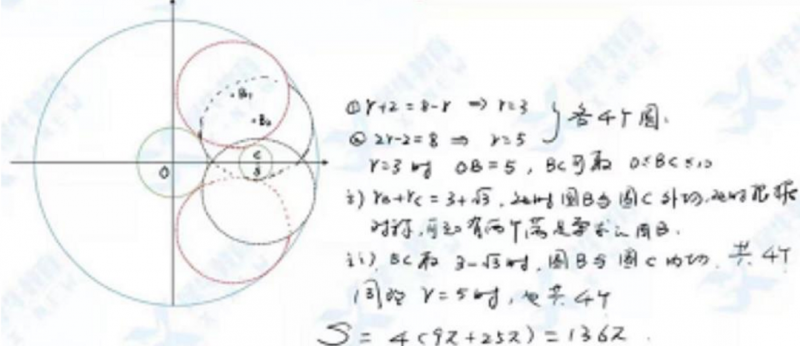 B₁
B₂
O
C
5
① r+2=8-r ⇒ r=3
② 2r-2=8 ⇒ r=5
} 各4个圆.
r=3时 OB=5, BC可取 0≤BC≤10
i) r_B+r_C=3+√3, 此时圆B与圆C外切,此时根据
对称,可知有两个满足要求的圆B.
ii) BC取 3-√3时,圆B与圆C内切. 共4个
同理 r=5时,也共4个
S = 4(9π+25π)=136π.